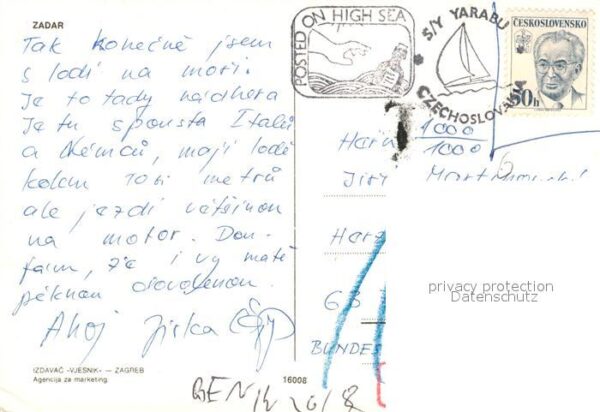 ZADAR
Tak konečně jsem
s lodí na moři.
Je to tady nádhera
Je tu spousta Italů
a Němců, mají lodě
kolem 10ti metrů
ale jezdí většinou
na motor. Dou-
fam, že i vy máte
pěknou dovolenou.
Ahoj Jirka
IZDAVAČ «VJESNIK» — ZAGREB
Agencija za marketing.
16008
POSTED ON HIGH SEA
S/Y YARABU
CZECHOSLOVAKIA
ČESKOSLOVENSKO
50h
1000
1000
Jiří
BUNDES
privacy protection
Datenschutz